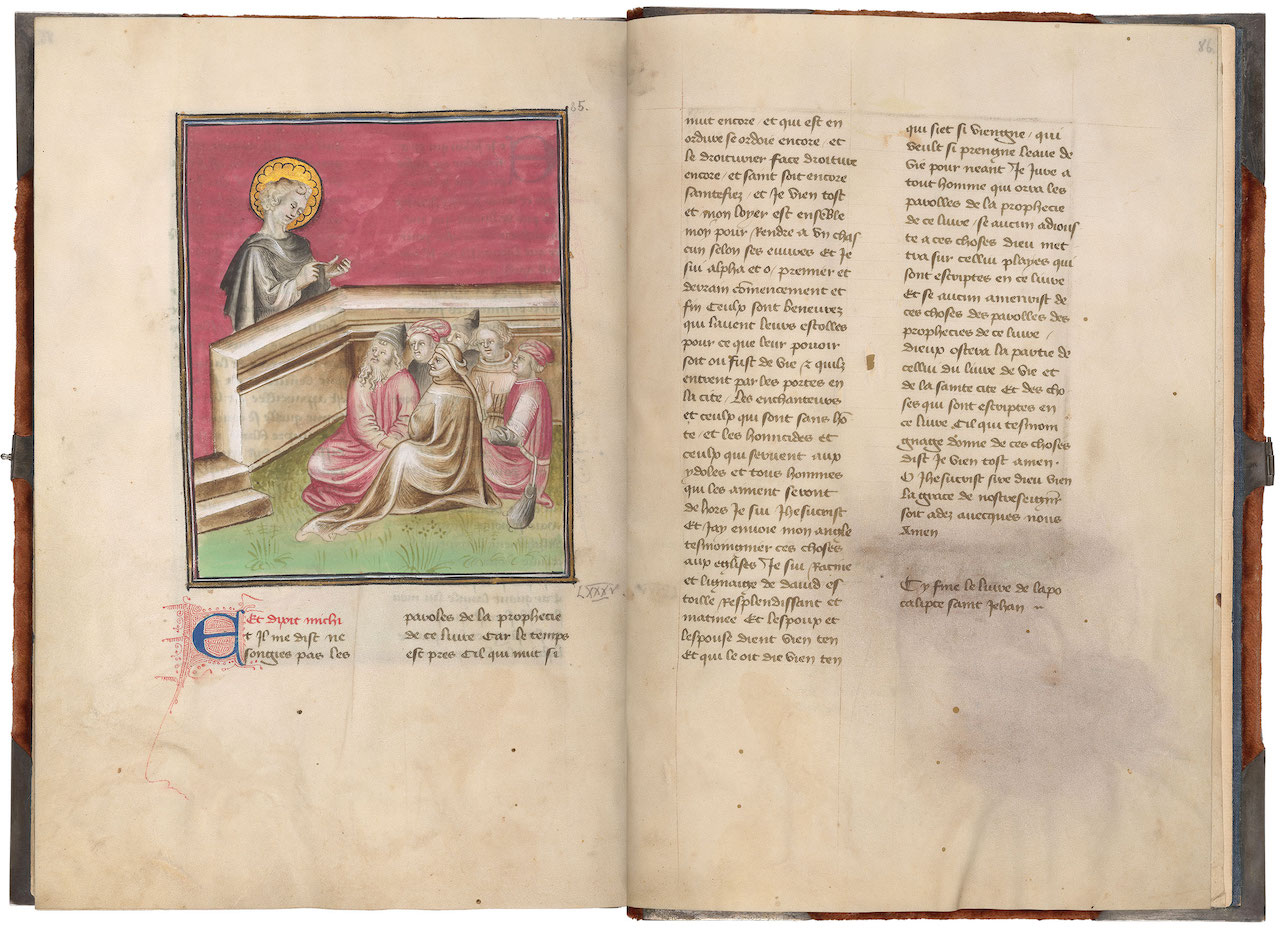 85.
LXXXV
Et dixit michi
Et Il me dist ne
songies pas les
paroles de la prophecie
de ce livre Car le temps
est pres Cil qui nuit si
86.
nuit encore / et qui est en
ordure se ordoie encore / et
le droiturier face droiture
encore / et saint soit encore
saintefiez / et Je vien tost
et mon loyer est ensẽble
moy pour / Rendre a vn chas
cun selon ses euures Et Je
sui alpha et o / premier et
derrain cõmencement et
fin Ceulx sont beneurez
qui lauent leurs estolles
pour ce que leur pouoir
soit ou fust de vie / & quilz
entrent par les portes en
la cite / Les enchanteurs
et ceulx qui sont sans hõ
te / et les homicides et
ceulx qui seruent aux
ydoles et tous hommes
qui les aiment seront
de hors Je sui Jhesucrist
Et Jay enuoie mon angle
tesmoingnier ces choses
aux eglises Je sui Racine
et lignaige de dauid es
toille / Resplendissant et
matinee Et lespoux et
lespouse dient vien ten
Et qui le oit die vien ten
qui siet si viengne / qui
veult si prengne leaue de
vie pour neant Je Jure a
tout homme qui orra les
parolles de la prophecie
de ce liure / se aucun adious
te a ces choses dieu met
tra sur cellui playes qui
sont escriptes en ce liure
Et se aucun amenrist de
ces choses des parolles des
prophecies de ce liure /
dieux ostera la partie de
cellui du liure de vie et
de la sainte cite Et des cho
ses qui sont escriptes en
ce liure Cil qui tesmoin
gnage donne de ces choses
dist Je vien tost amen.
O Jhesucrist sire dieu vien
la grace de nostreseigñr
soit adez auecques nous
Amen
Cy fine le liure de lapo
calipce saint Jehan